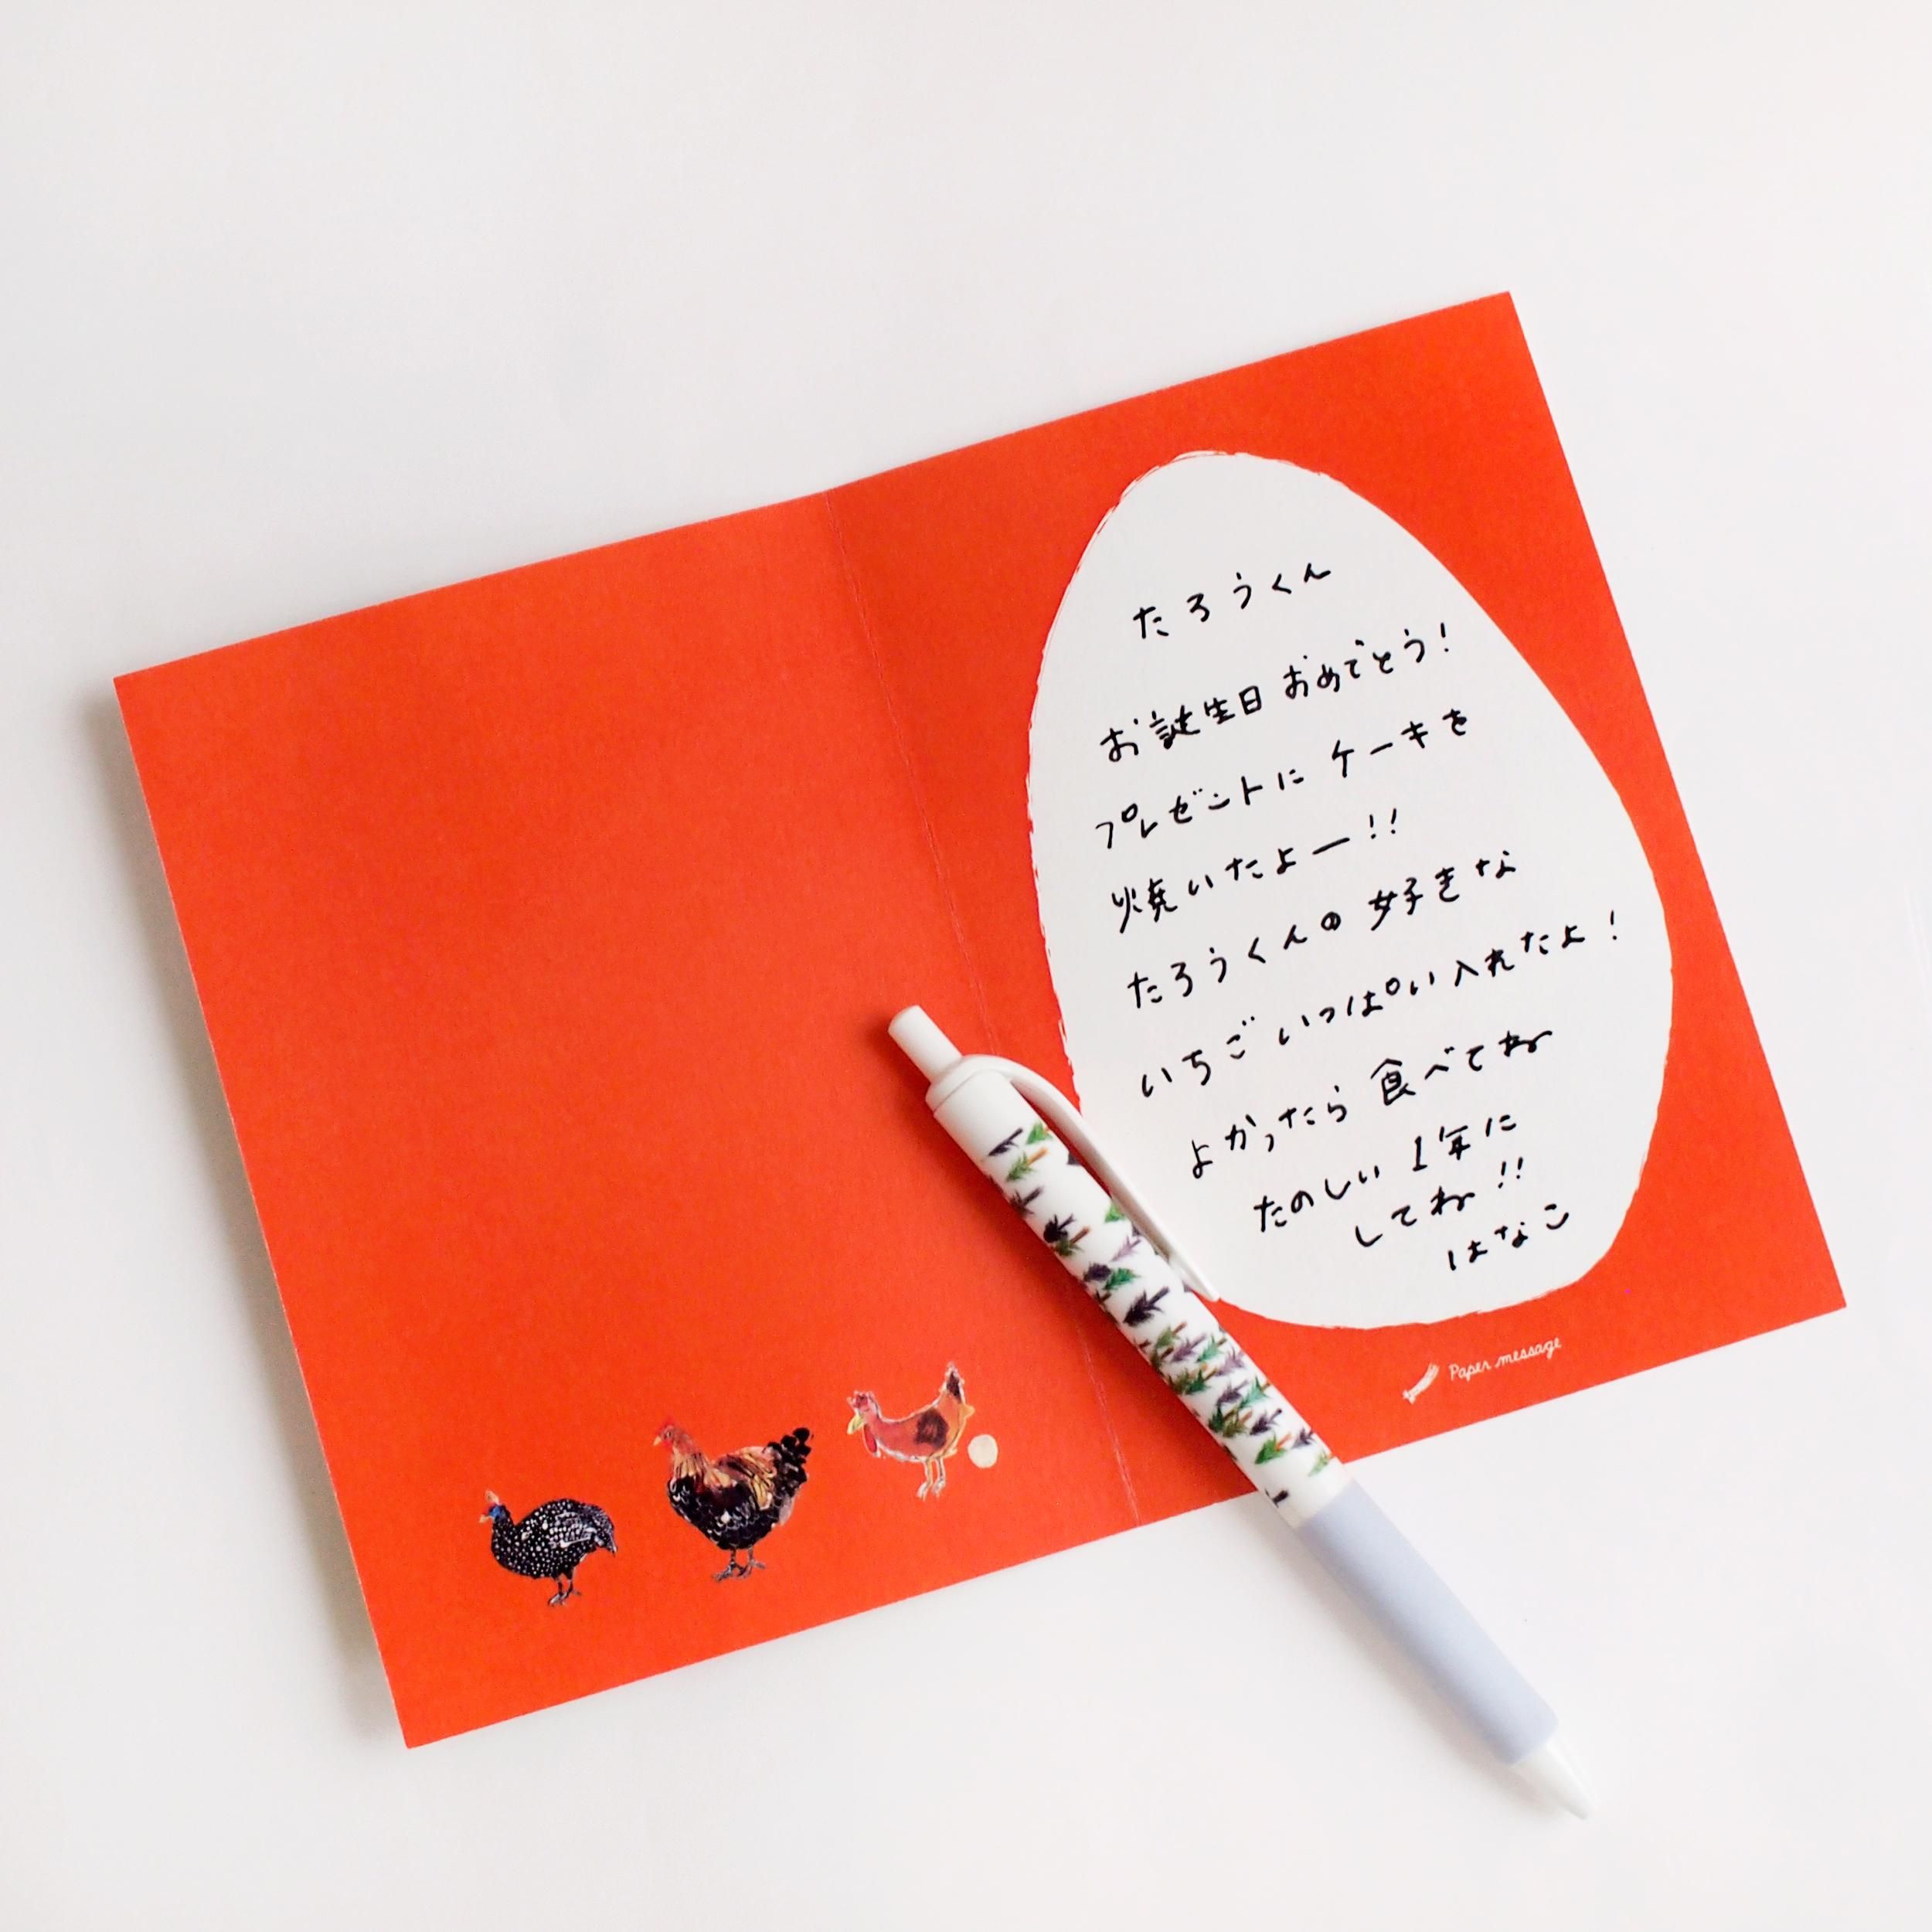 たろうくん
お誕生日 おめでとう!
プレゼントに ケーキを
焼いたよー!!
たろうくんの 好きな
いちご いっぱい 入れたよ!
よかったら 食べてね
たのしい 1年に
してね!!
はなこ
Paper message